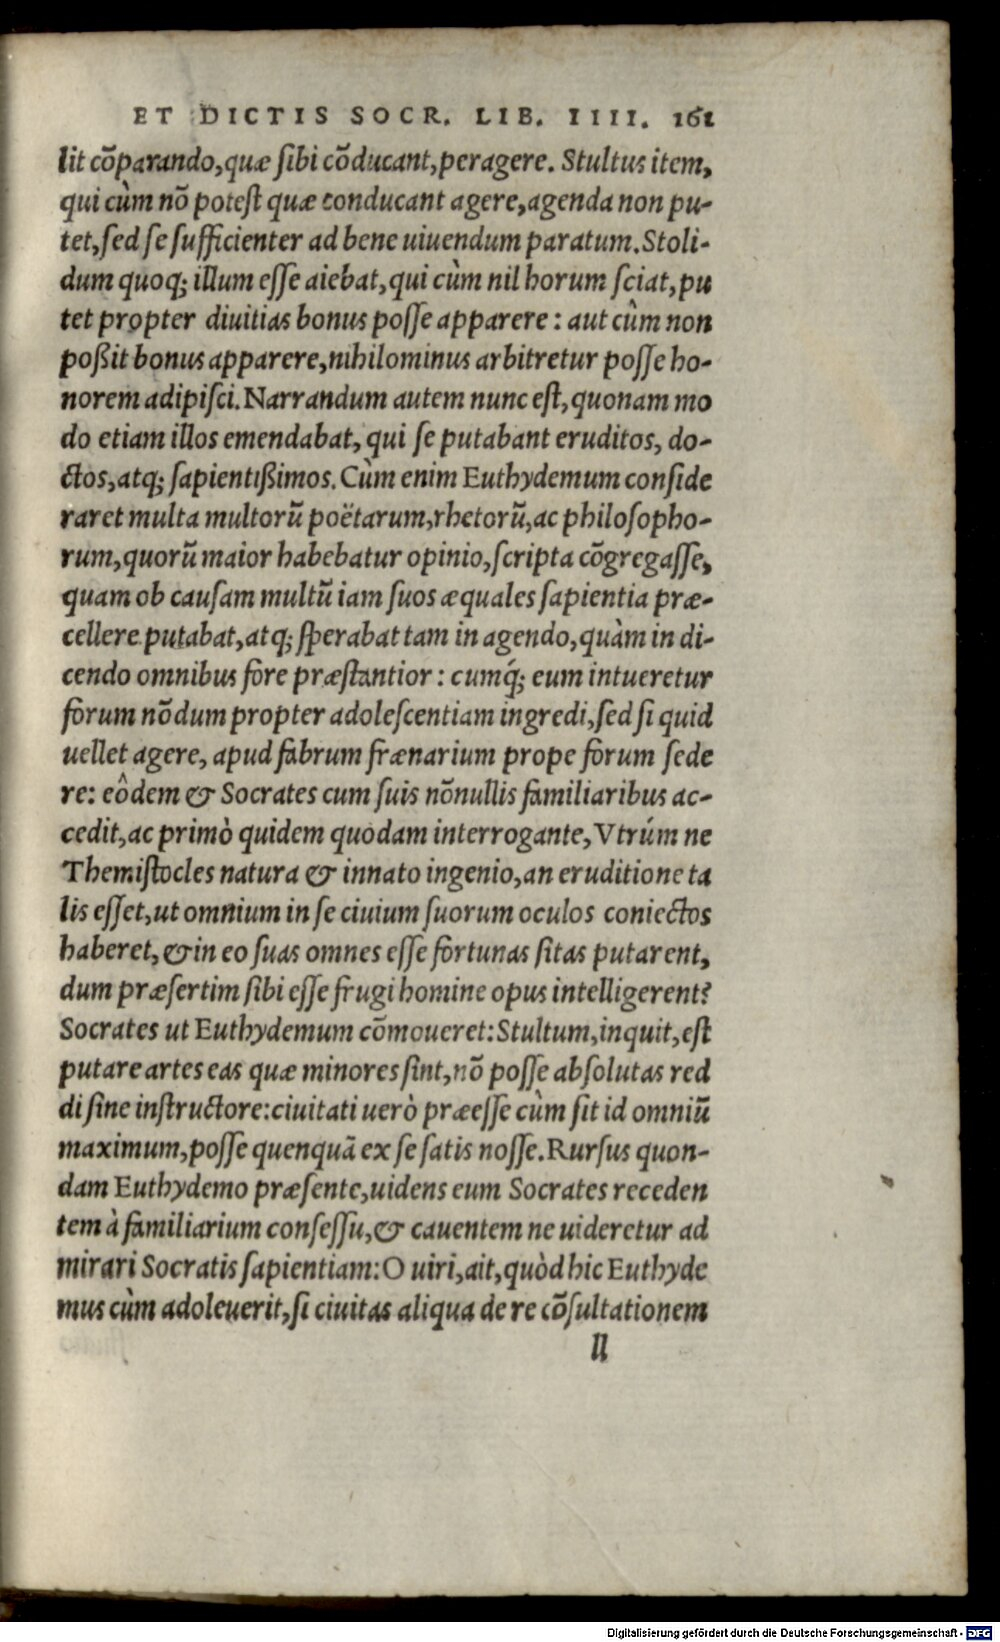 ET DICTIS SOCR. LIB. IIII. 161
lit cõparando, quæ sibi cõducant, peragere. Stultus item,
qui cùm nõ potest quæ conducant agere, agenda non pu-
tet, sed se sufficienter ad bene uiuendum paratum. Stoli-
dum quoq; illum esse aiebat, qui cùm nil horum sciat, pu
tet propter diuitias bonus posse apparere: aut cùm non
poßit bonus apparere, nihilominus arbitretur posse ho-
norem adipisci. Narrandum autem nunc est, quonam mo
do etiam illos emendabat, qui se putabant eruditos, do-
ctos, atq; sapientißimos. Cùm enim Euthydemum conside
raret multa multorũ poëtarum, rhetorũ, ac philosopho-
rum, quorũ maior habebatur opinio, scripta cõgregasse,
quam ob causam multũ iam suos æquales sapientia præ-
cellere putabat, atq; sperabat tam in agendo, quàm in di-
cendo omnibus fore præstantior: cumq́; eum intueretur
forum nõdum propter adolescentiam ingredi, sed si quid
uellet agere, apud fabrum frænarium prope forum sede
re: eôdem & Socrates cum suis nõnullis familiaribus ac-
cedit, ac primò quidem quodam interrogante, Vtrúm ne
Themistocles natura & innato ingenio, an eruditione ta
lis esset, ut omnium in se ciuium suorum oculos coniectos
haberet, & in eo suas omnes esse fortunas sitas putarent,
dum præsertim sibi esse frugi homine opus intelligerent?
Socrates ut Euthydemum cõmoueret: Stultum, inquit, est
putare artes eas quæ minores sint, nõ posse absolutas red
di sine instructore: ciuitati uerò præesse cùm sit id omniũ
maximum, posse quenquã ex se satis nosse. Rursus quon-
dam Euthydemo præsente, uidens eum Socrates receden
tem à familiarium consessu, & cauentem ne uideretur ad
mirari Socratis sapientiam: O uiri, ait, quòd hic Euthyde
mus cùm adoleuerit, si ciuitas aliqua de re cõsultationem
ll
Digitalisierung gefördert durch die Deutsche Forschungsgemeinschaft - DFG